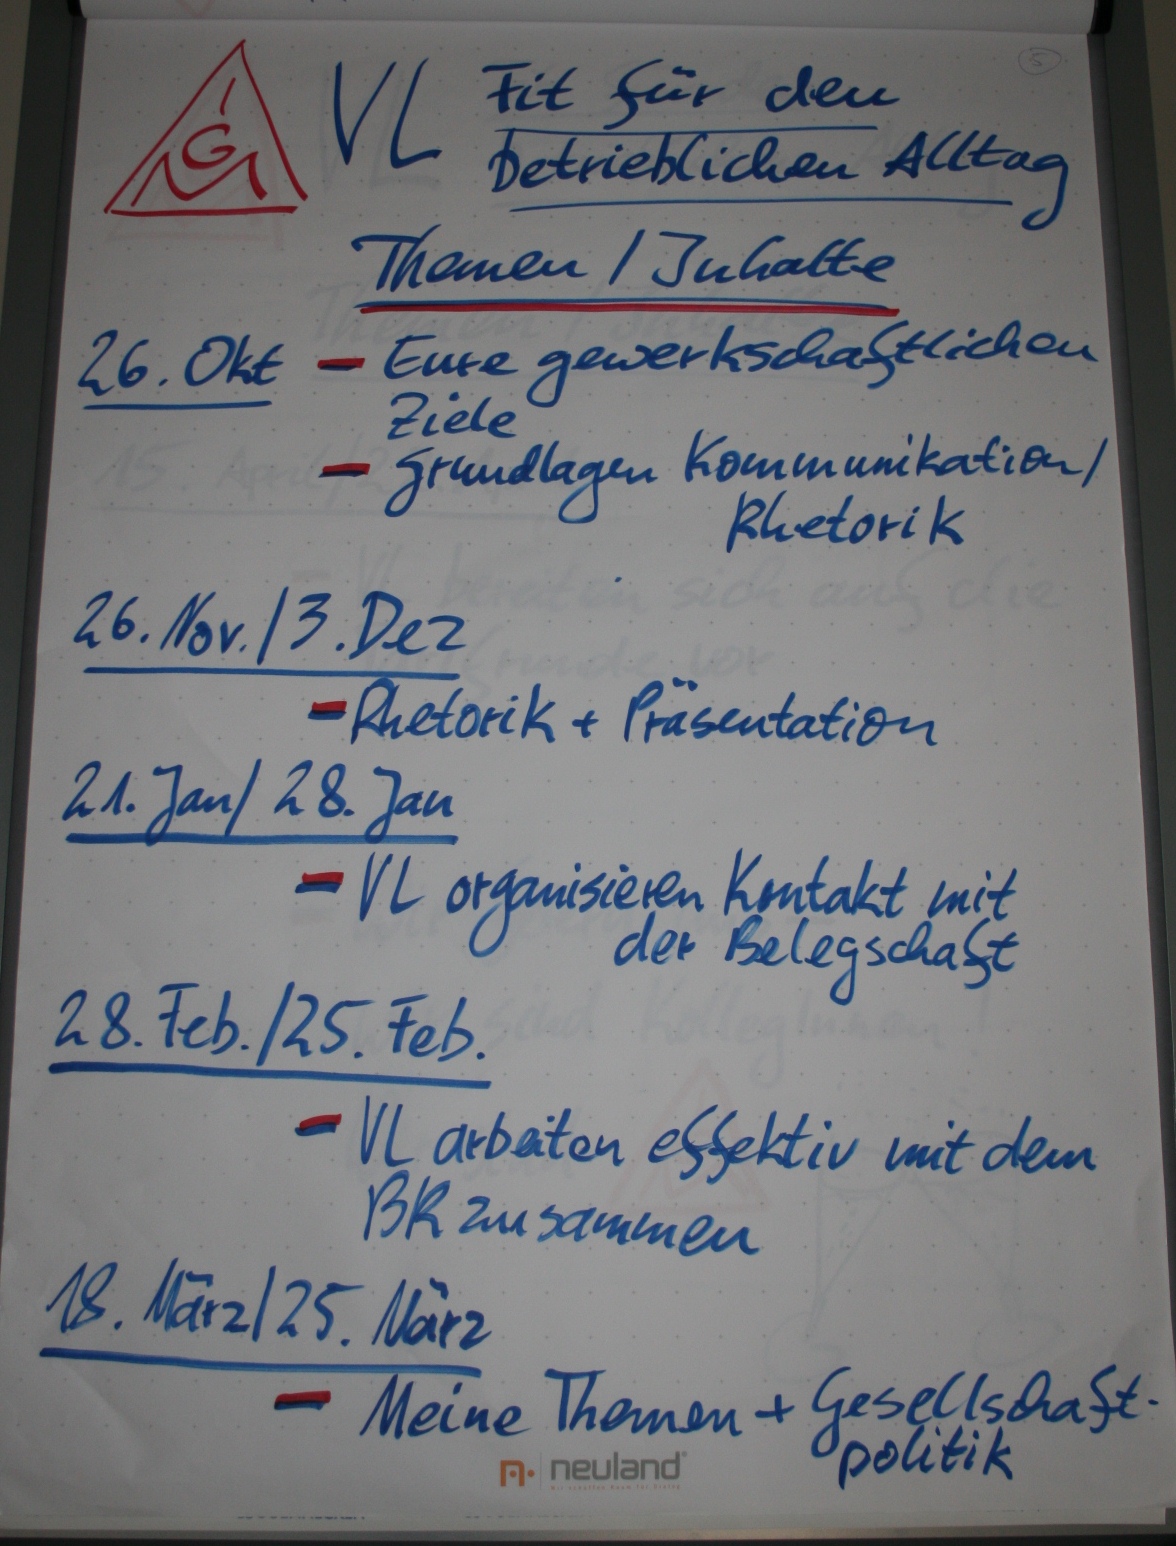 5
IGM
VL Fit für den
betrieblichen Alltag
Themen / Inhalte
26. Okt - Eure gewerkschaftlichen
Ziele
- Grundlagen Kommunikation/
Rhetorik
26. Nov. / 3. Dez
- Rhetorik + Präsentation
21. Jan / 28. Jan
- VL organisieren Kontakt mit
der Belegschaft
28. Feb. / 25. Feb.
- VL arbeiten effektiv mit dem
BR zusammen
18. März / 25. März
- Meine Themen + Gesellschaft-
politik
neuland